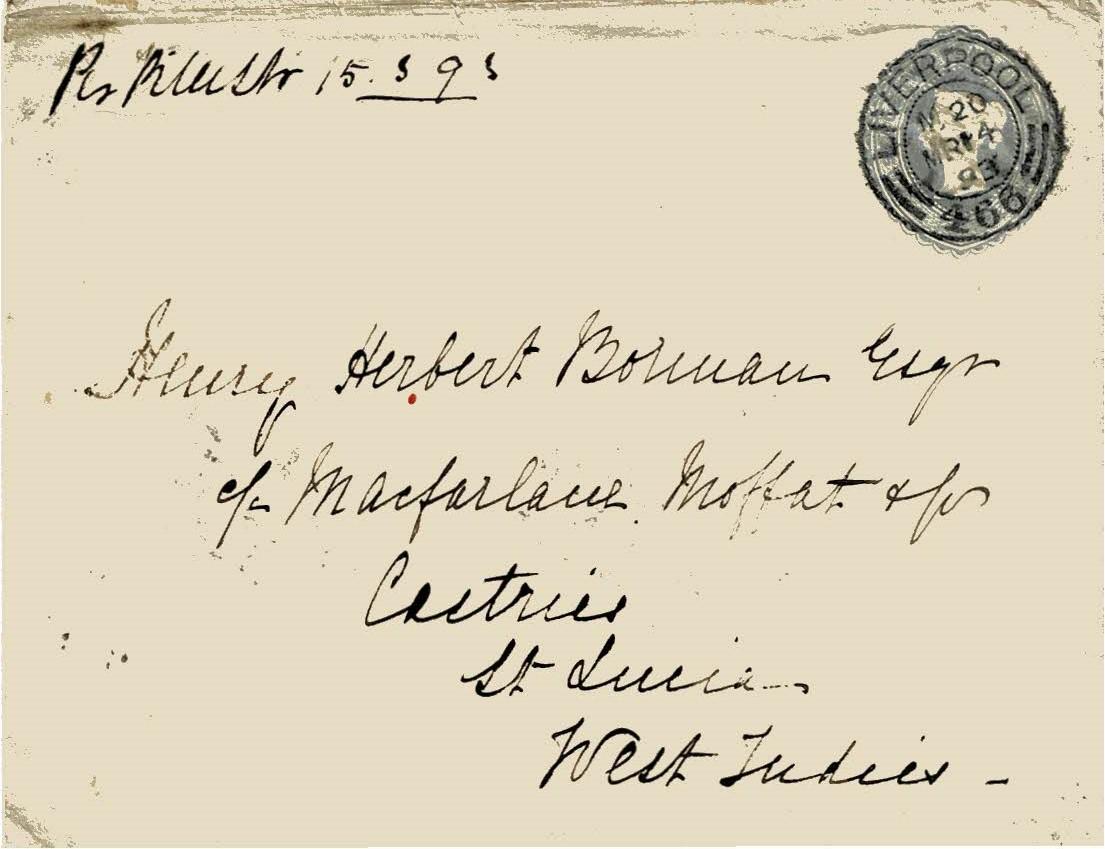 Per RMStr 15.3 93
LIVERPOOL
MR 14
93
466
Henry Herbert Borman Esqr
c/o Macfarlane Moffat & Co
Castries
St Lucia
West Indies -